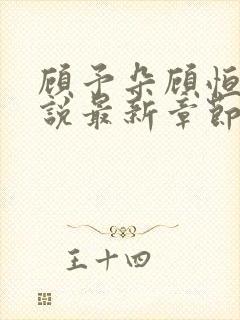 顾予朵顾恒
說最新章節
王十四